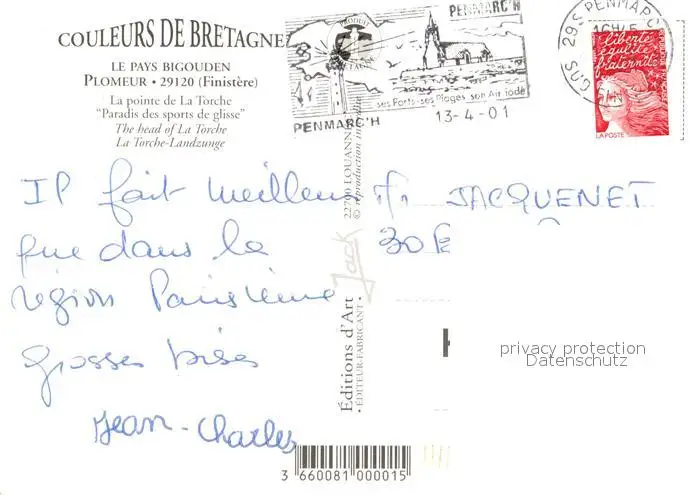 COULEURS DE BRETAGNE
LE PAYS BIGOUDEN
PLOMEUR • 29120 (Finistère)
La pointe de La Torche
"Paradis des sports de glisse"
The head of La Torche
La Torche-Landzunge
PRODUIT
PENMARC'H
ses Ports-ses Plages son Air iodé
PENMARC'H
13-4-01
29S PENMARC
liberté
égalité
fraternité
LA POSTE
Il fait meilleur
que dans la
région Parisienne
grosses bises
Jean-Charles
JACQUENET
30
Editions d'Art Jack
• ÉDITEUR-FABRICANT •
22700 LOUANNEC
© reproduction interdite
privacy protection
Datenschutz
3 660081 000015